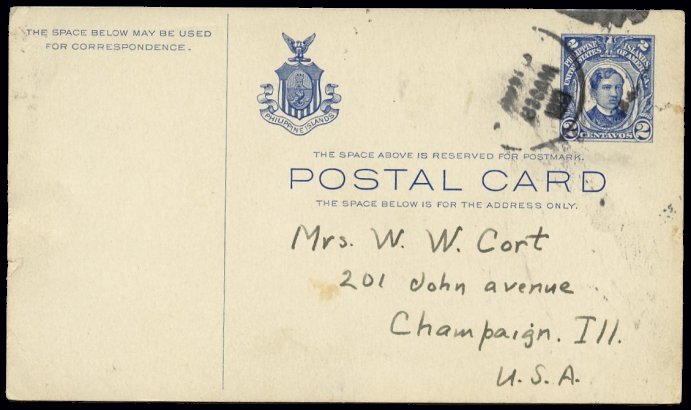 THE SPACE BELOW MAY BE USED
FOR CORRESPONDENCE.
PHILIPPINE ISLANDS
2 PHILIPPINE ISLANDS 2
UNITED STATES OF AMERICA
2 CENTAVOS 2
THE SPACE ABOVE IS RESERVED FOR POSTMARK.
POSTAL CARD
THE SPACE BELOW IS FOR THE ADDRESS ONLY.
Mrs. W. W. Cort
201 John avenue
Champaign. Ill.
U.S.A.